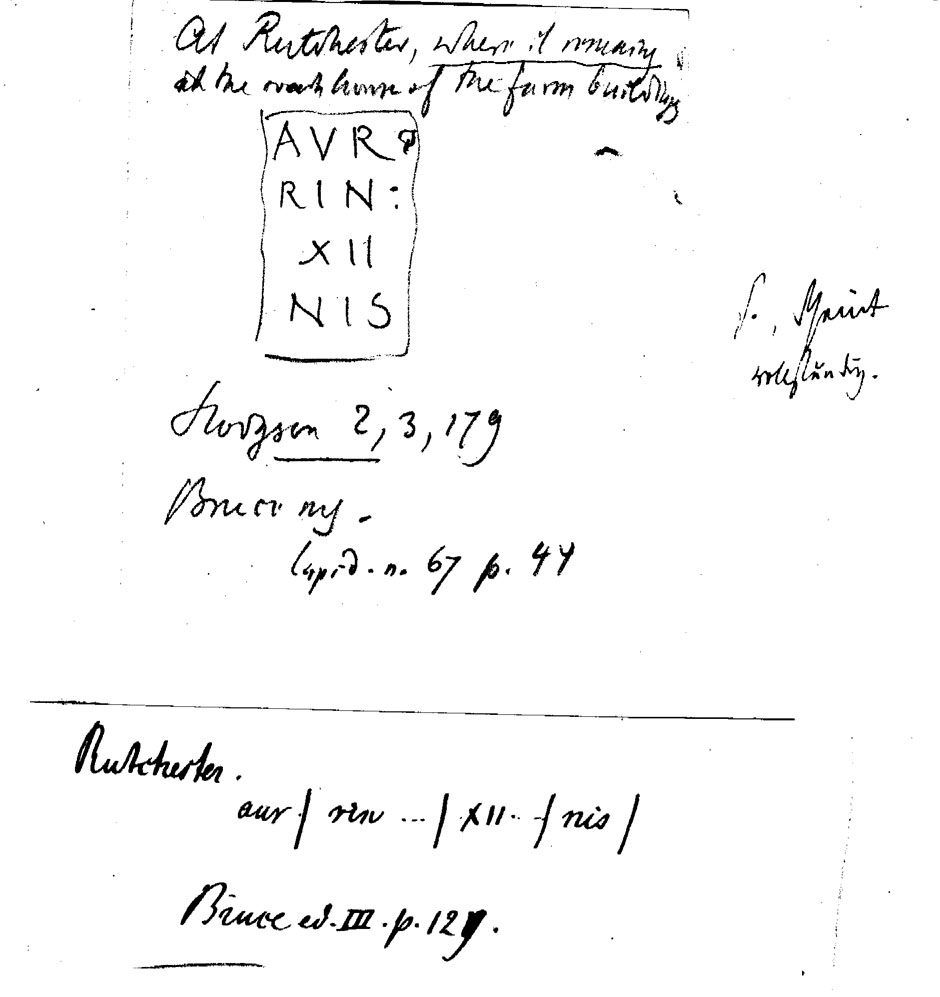 At Rutchester, where it remains
at the wash house of the farm buildings
AVR
RIN:
XII
NIS
S.,
vollständig.
Hodgson 2, 3, 179
Bruce
lapid. n. 67 p. 44
Rutchester.
aur | rin ... | XII.. | nis |
Bruce ed. III. p. 127.